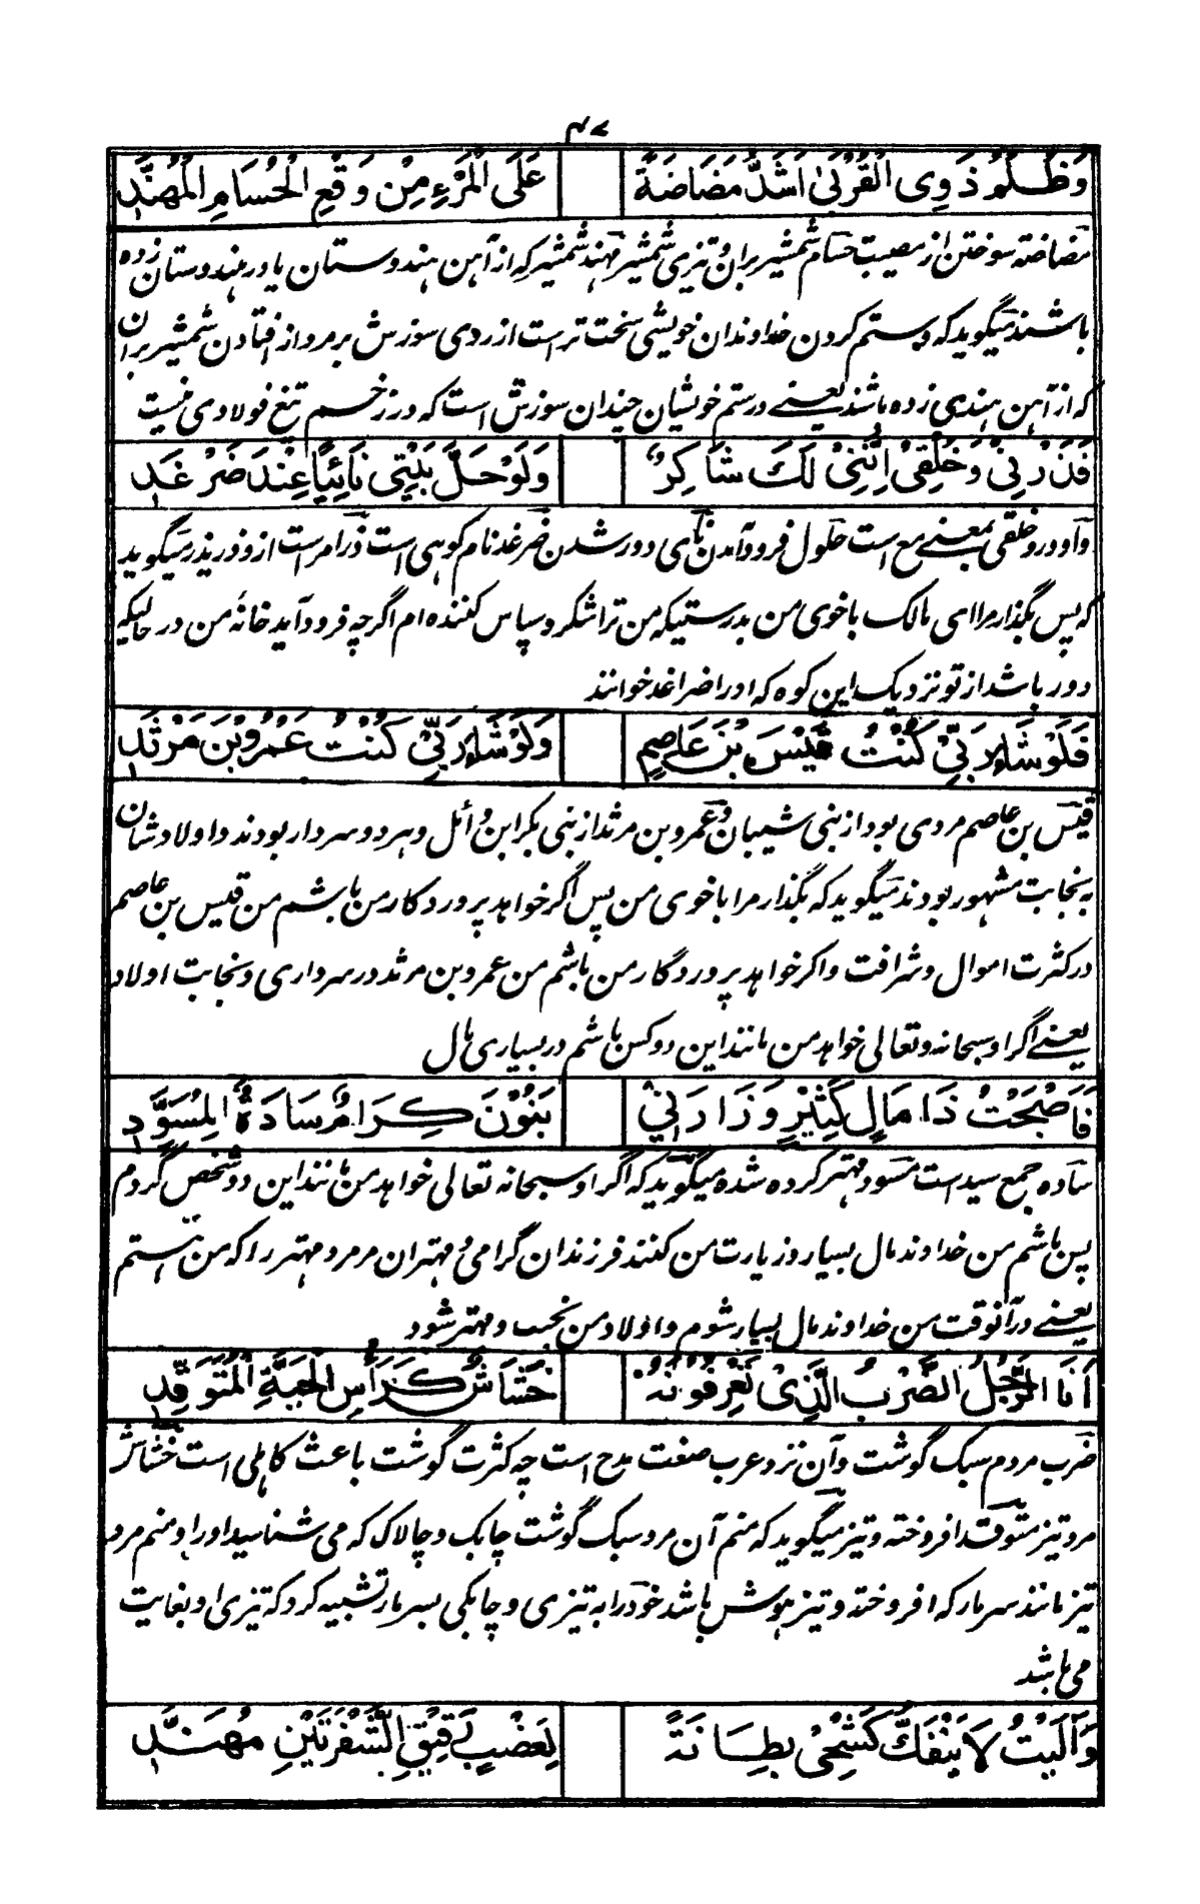 ۴۷
وَظُلْمُ ذَوِی الْقُرْبٰی اَشَدُّ مَضَاضَةً عَلَی الْمَرْءِ مِنْ وَقْعِ الْحُسَامِ الْمُهَنَّدِ
مضاضته سوختن از مصیبت حسام شمشیر بران و تیزی شمشیر مهند شمشیر که از آهن هندوستان یا در هندوستان زده
باشند میگوید که و ستم کردن خداوندان خویشی سخت تر است از روی سوزش بر مرد از افتادن شمشیر بران
که از آهن هندی زده باشند یعنے در ستم خویشان چندان سوزش است که در زخم تیغ فولادی نیست
فَذَرْنِیْ وَخُلِقیْ اِنَّنِیْ لَكَ شَاكِرٌ وَلَوْ حَلَّ بَیْتِی نَائِیًا عِنْدَ ضَرْغَدِ
واو در و خلقی بمعنے مع است حلول فرود آمدن نای دور شدن ضرغد نام کوهی است ذر امر است از وذر یذر میگوید
که پس بگذار مرا ای مالک با خوی من بدرستیکه من ترا شکر و سپاس کننده ام اگر چه فرود آید خانهٔ من در حالیکه
دور باشد از تو نزدیک این کوه که او را ضراغد خوانند
فَلَوْ شَاءَ رَبِّیْ كُنْتُ قَیْسَ بْنَ عَاصِمٍ وَلَوْ شَاءَ رَبِّیْ كُنْتُ عَمْرَو بْنَ مَرْثَدِ
قیس بن عاصم مردی بود از بنی شیبان و عمرو بن مرثد از بنی بکر ابن وائل و هر دو سردار بودند و اولاد شان
به نجابت مشهور بودند میگوید که بگذار مرا با خوی من پس اگر خواهد پروردگار من باشم من قیس بن عاصم
در کثرت اموال و شرافت و اگر خواهد پروردگار من باشم من عمرو بن مرثد در سرداری و نجابت اولاد
یعنے اگر او سبحانه و تعالی خواهد من مانند این دو کس باشم در بسیاری مال
فَاَصْبَحْتُ ذَا مَالٍ كَثِیْرٍ وَزَارَنِیْ بَنُوْنَ كِرَامٌ سَادَةٌ لِمُسَوَّدِ
ساده جمع سید است مسود مهتر کرده شده میگوید که اگر او سبحانه تعالی خواهد من مانند این دو شخص گردم
پس باشم من خداوند مال بسیار و زیارت من کنند فرزندان گرامی و مهتران مر مرد مهتر را که من هستم
یعنے در آنوقت من خداوند مال بسیار شوم و اولاد من نجیب و مهتر شود
اَنَا الرَّجُلُ الضَّرْبُ الَّذِیْ تَعْرِفُوْنَهُ خَشَاشٌ كَرَأْسِ الْحَیَّةِ الْمُتَوَقِّدِ
ضرب مردم سبک گوشت و آن نزد عرب صفت مدح است چه کثرت گوشت باعث کاهلی است خشاش
مرد تیز متوقد افروخته و تیز میگوید که منم آن مرد سبک گوشت چابک و چالاک که می شناسید او را و منم مرد
تیز مانند سر مار که افروخته و تیز هوش باشد خود را به تیزی و چابکی بسر مار تشبیه کرد که تیزی او بغایت
می باشد
وَآلَیْتُ لَا یَنْفَكُّ كَشْحِیْ بِطَانَةً لِعَضْبٍ رَقِیْقِ الشَّفْرَتَیْنِ مُهَنَّدِ